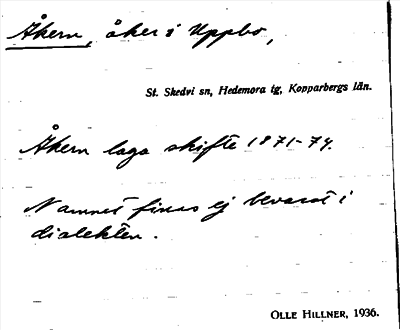 Åkern, åker i Uppbo,
St. Skedvi sn, Hedemora tg, Kopparbergs län.
Åkern laga skifte 1871-74.
Namnet finns ej bevarat i
dialekten.
OLLE HILLNER, 1936.